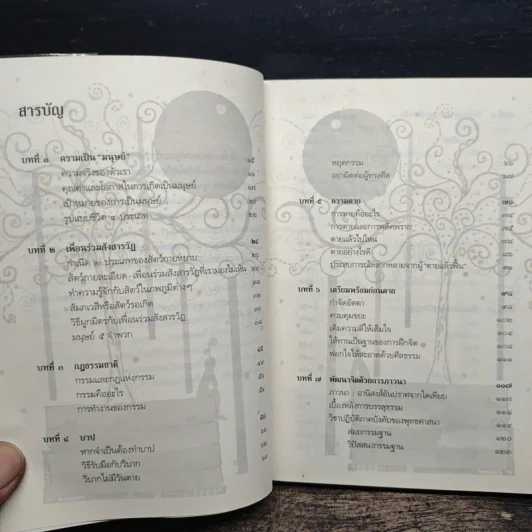 สารบัญ
บทที่ ๑ ความเป็น "มนุษย์" ๑๕
ความจริงของตัวเรา
คุณค่าและโอกาสในการเกิดเป็นมนุษย์ ๑๗
เป้าหมายของการเป็นมนุษย์
รูปแบบชีวิต ๔ ประเภท
บทที่ ๒ เพื่อนร่วมสังสารวัฏ
กำเนิด ๒ ประเภทของสัตว์กายหยาบ
สัตว์กายละเอียด : เพื่อนร่วมสังสารวัฏที่เรามองไม่เห็น
ทำความรู้จักกับสัตว์ในภพภูมิต่างๆ
สัมภเวสีหรือสัตว์รอเกิด
วิธีผูกมิตรกับเพื่อนร่วมสังสารวัฏ
มนุษย์ ๕ จำพวก
บทที่ ๓ กฎธรรมชาติ
กรรมและกฎแห่งกรรม
กรรมคืออะไร
การทำงานของกรรม
บทที่ ๔ บาป
หากจำเป็นต้องทำบาป
วิธีรับมือกับวิบาก
วิบากไม่มีวันตาย
หยุดกรรม
อย่าผิดต่อผู้ทรงศีล
บทที่ ๕ ความตาย
การตายคืออะไร
การตายและการพลัดพราก
ตายแล้วไปไหน
ตายอย่างไรดี
ประสบการณ์หลากหลายจากผู้ "ตายแล้วฟื้น"
บทที่ ๖ เตรียมพร้อมก่อนตาย
กำจัดอัตตา
ควบคุมขยะ
เติมความดีให้เต็มใจ
ให้ทานเป็นฐานของการฝึกจิต
ฟอกใจให้สะอาดด้วยศีลธรรม
บทที่ ๗ พัฒนาจิตด้วยการภาวนา ๑๑๗
ภาวนา : อานิสงส์อันปราศจากใดเทียบ ๑๑๗
เบื้องหลังการบรรลุธรรม ๑๑๘
วิชาปฏิบัติภาคบังคับของพุทธศาสนา ๑๑๘
สมถกรรมฐาน
วิปัสสนากรรมฐาน ๑๒๓